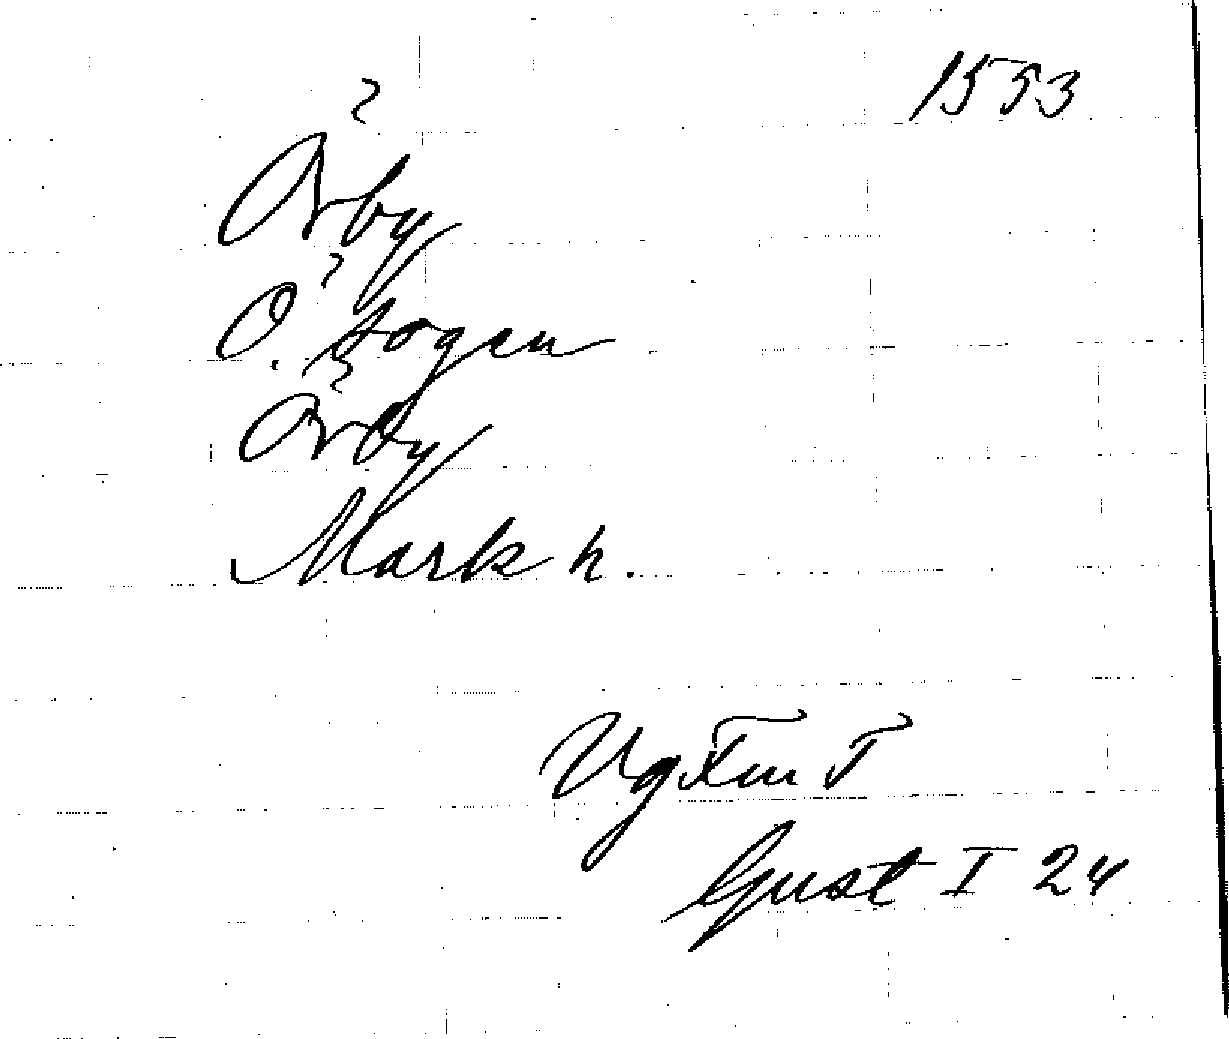 1553
Örby
Ö. skogen
Örby
Mark h.
Vg
Gust I 24